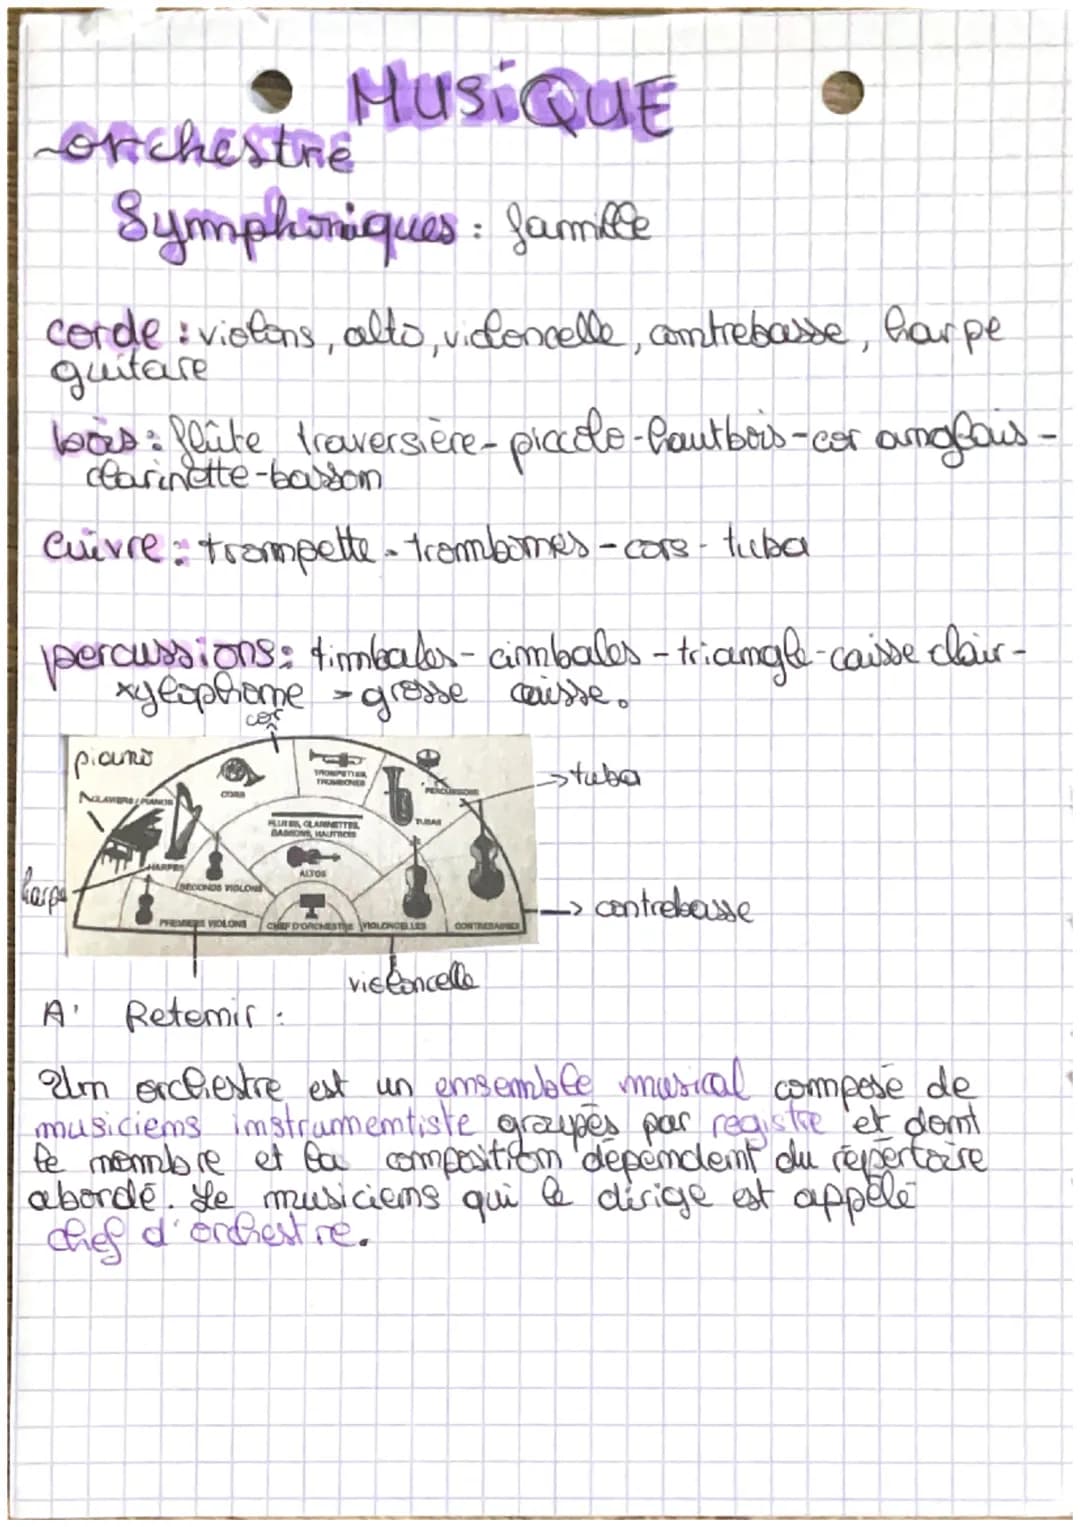 MUSiQUE
orchestre
Symphoniques : famille
corde : violons, alto, violoncelle, contrebasse, harpe
guitare
bois : flûte traversière - piccolo - hautbois - cor anglais -
clarinette - basson
Cuivre : trompette - trombones - cors - tuba
percussions : timbales - cimbales - triangle - caisse clair -
xylophone - grosse caisse.
cor
piano
CLAVIERS / PIANOS
CORS
TROMPETTES,
TROMBONES
PERCUSSIONS
TUBAS
tuba
FLUTES, CLARINETTES,
BASSONS, HAUTBOIS
HARPES
ALTOS
harpe
SECONDS VIOLONS
PREMIERS VIOLONS
CHEF D'ORCHESTRE
VIOLONCELLES
CONTREBASSES
contrebasse
violoncelle
A' Retenir :
Un orchestre est un ensemble musical composé de
musiciens instrumentiste groupés par registre et dont
le nombre et la composition dépendent du répertoire
abordé. Le musiciens qui le dirige est appelé
chef d'orchestre.